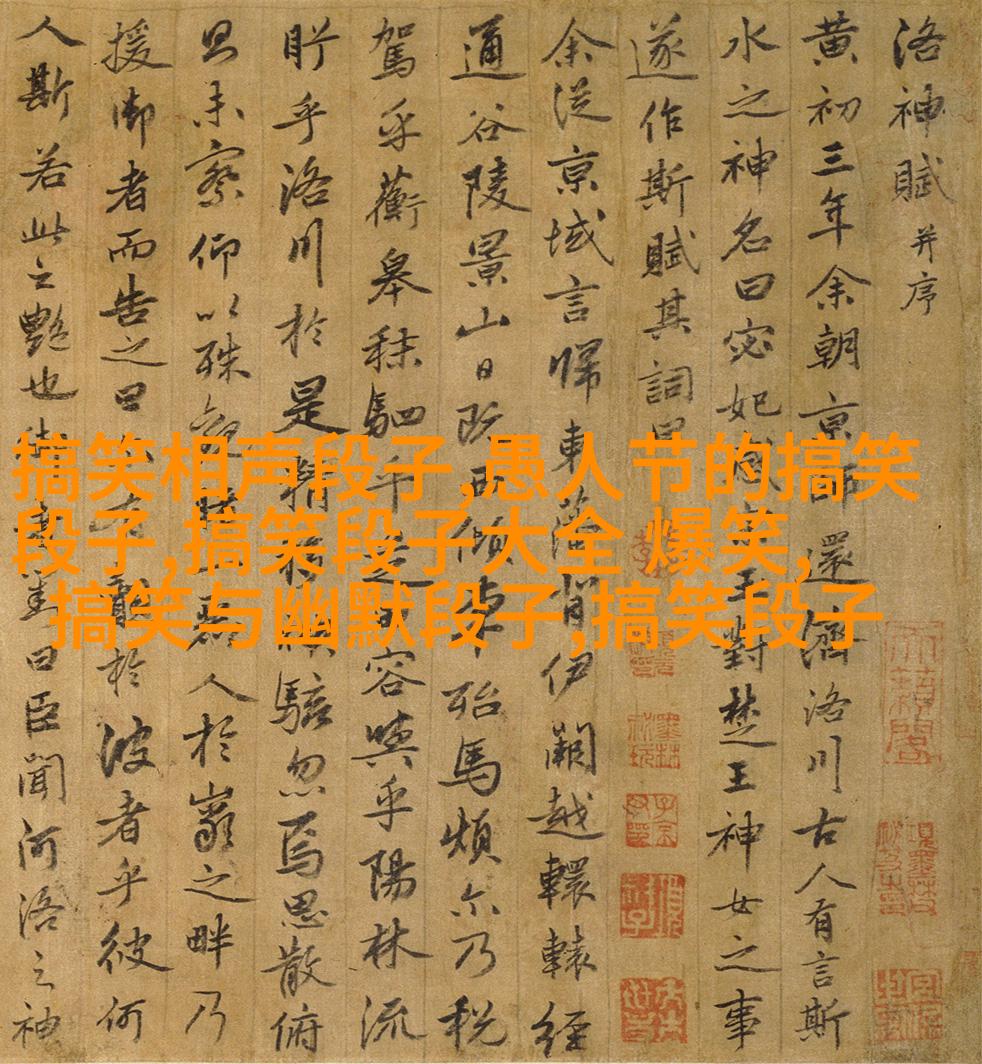 洛神賦 并序
黄初三年余朝京師還濟洛川古人有言斯
水之神名曰宓妃感玉對楚王神女之事
遂作斯賦其詞曰
余從京域言歸東藩背伊闕越轘轅經
通谷陵景山日既西傾殆馬煩尓乃税
駕乎蘅皋秣駟乎容與乎陽林流
眄乎洛川於是精移駭忽焉思散俯
則未察仰以殊觀麗人於巖之畔乃
援御者而告之曰覿於彼者乎彼何
人斯若此之艷也御對曰臣聞河洛之神
搞笑相声段子,愚人节的搞笑
段子,搞笑段子大全 爆笑,
搞笑与幽默段子,搞笑段子